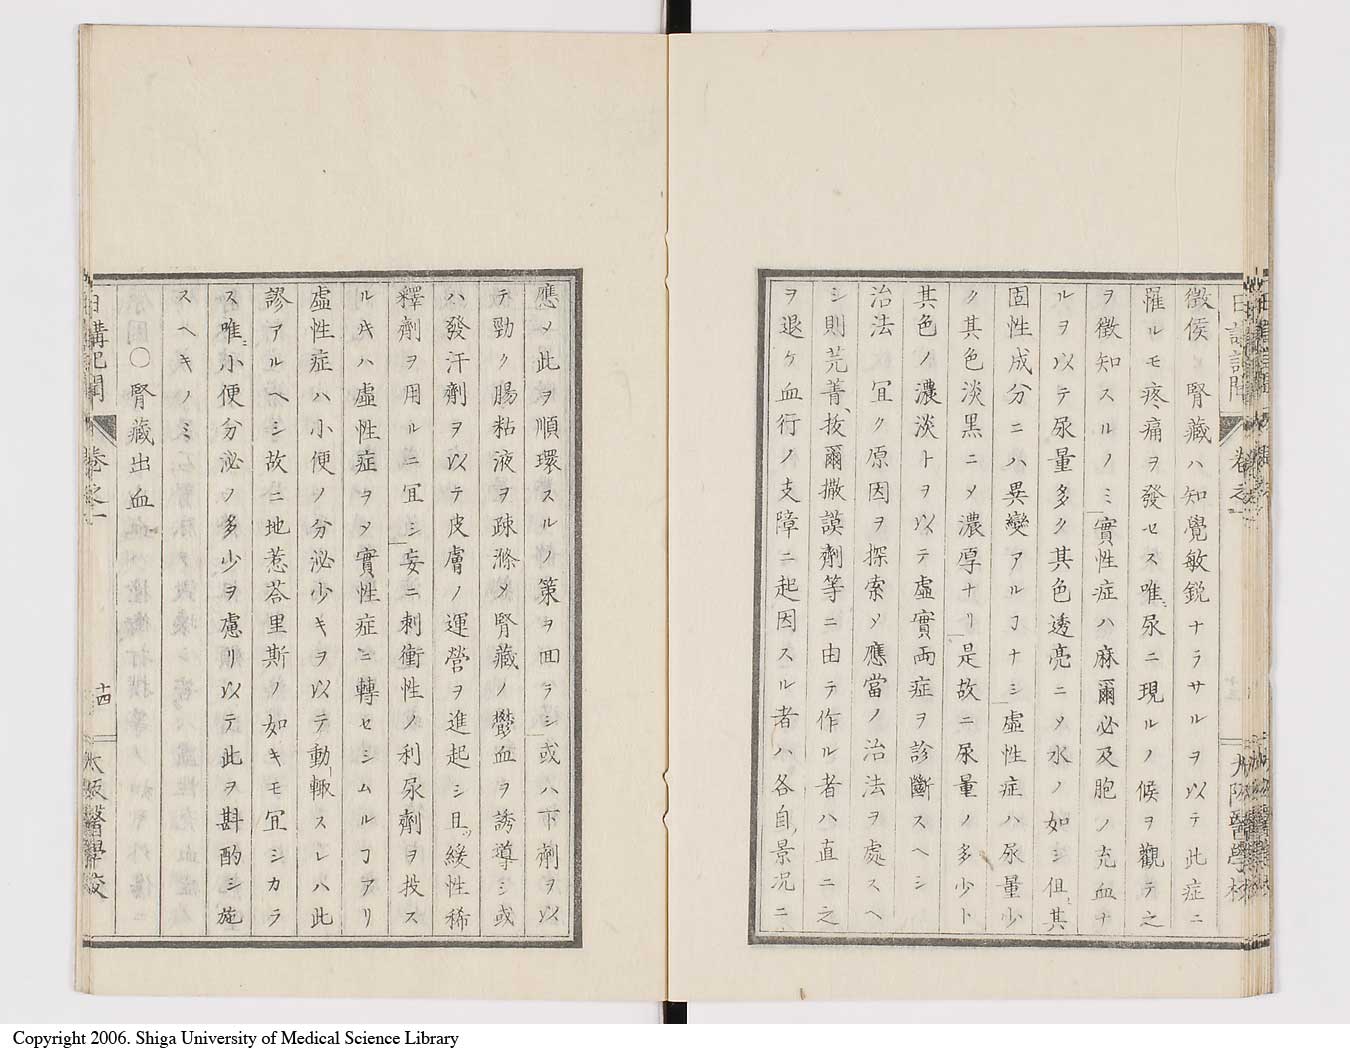 日講記聞 卷之一 大阪醫學校
徴候 腎藏ハ知覺敏鋭ナラサルヲ以テ此症ニ
罹ルモ疼痛ヲ發セス唯尿ニ現ルノ候ヲ觀テ之
ヲ徴知スルノミ實性症ハ麻爾必及胞ノ充血ナ
ルヲ以テ尿量多ク其色透亮ニメ水ノ如シ伹其
固性成分ニハ異變アルヿナシ虛性症ハ尿量少
ク其色淡黒ニメ濃厚ナリ是故ニ尿量ノ多少ト
其色ノ濃淡トヲ以テ虛實両症ヲ診斷スヘシ
治法 冝ク原因ヲ探索メ應當ノ治法ヲ處スヘ
シ則芫菁、抜爾撒謨劑等ニ由テ作ル者ハ直ニ之
ヲ退ケ血行ノ支障ニ起因スル者ハ各自景况ニ
應メ此ヲ順環スルノ策ヲ囬ラシ或ハ下劑ヲ以
テ勁ク腸粘液ヲ疎滌メ腎藏ノ鬱血ヲ誘導シ或
ハ發汗劑ヲ以テ皮膚ノ運營ヲ進起シ且ッ緩性稀
釋劑ヲ用ルニ冝シ妄ニ刺衝性ノ利尿劑ヲ投ス
ルキハ虛性症ヲメ實性症ニ轉セシムルヿアリ
虛性症ハ小便ノ分泌少キヲ以テ動輙スレハ此
謬アルヘシ故ニ地惹荅里斯ノ如キモ冝シカラ
ス唯小便分泌ノ多少ヲ慮リ以テ此ヲ斟酌シ施
スヘキノミ
〇腎藏出血
日講記聞 卷之一 十四 大阪醫學校
Copyright 2006. Shiga University of Medical Science Library